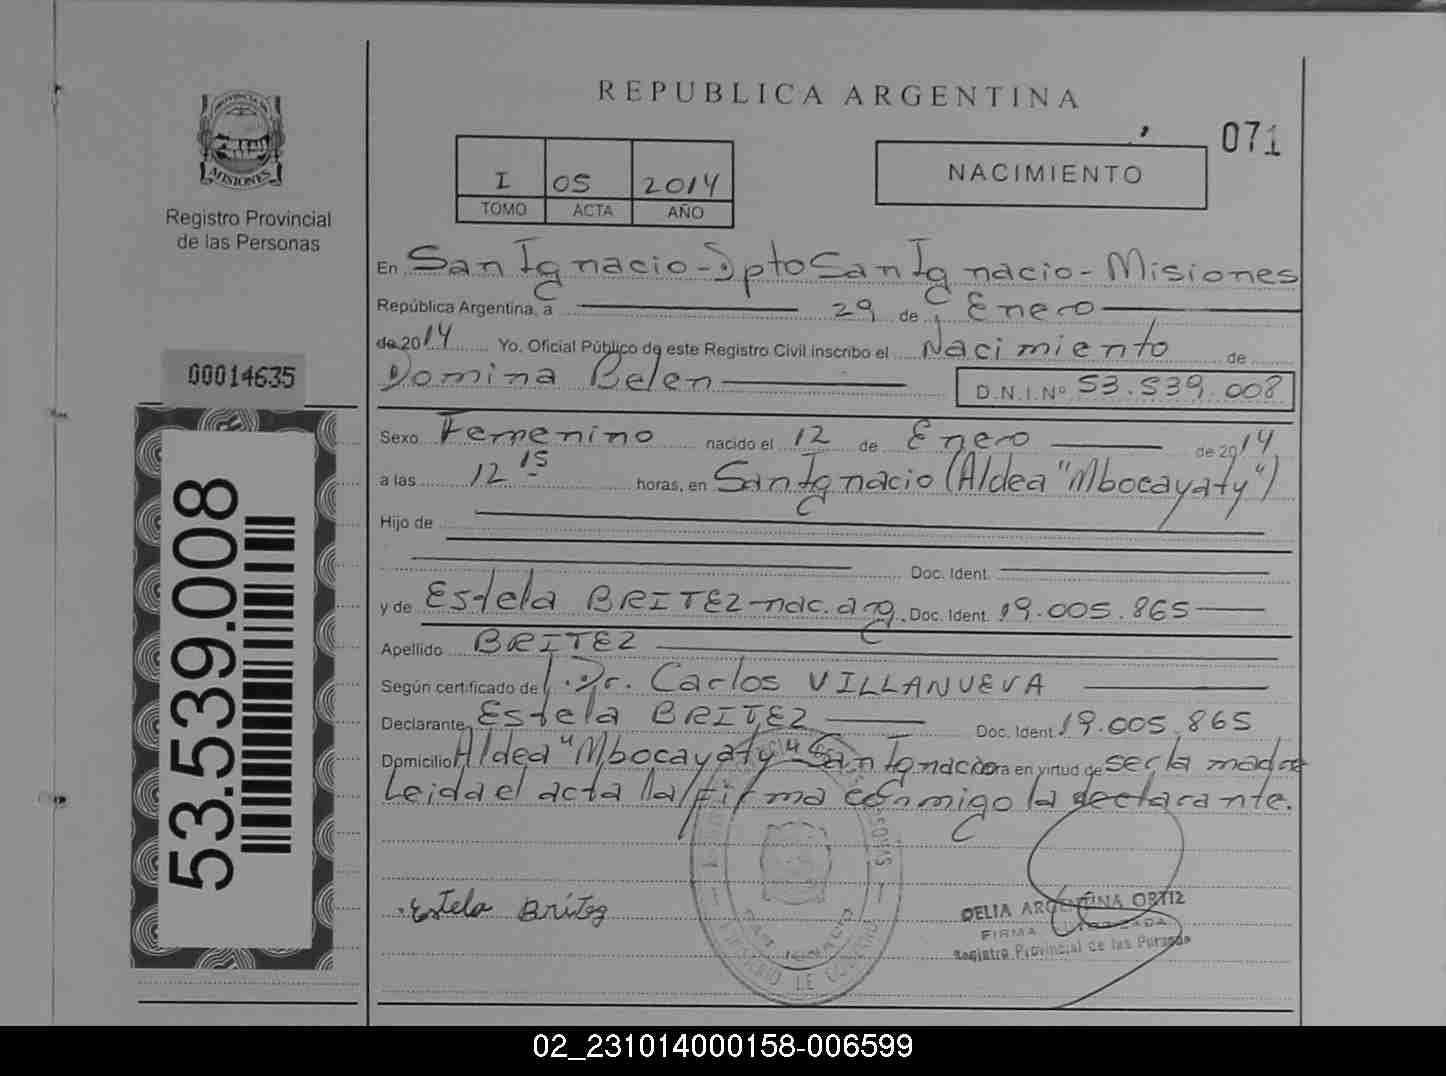 REPUBLICA ARGENTINA
071
PROVINCIA DE
MISIONES
Registro Provincial
de las Personas
I 05 2014
TOMO ACTA AÑO
NACIMIENTO
En San Ignacio - Dpto San Ignacio - Misiones
República Argentina, a 29 de Enero
de 2014 Yo, Oficial Público de este Registro Civil inscribo el Nacimiento de
Domina Belen D.N.I.Nº 53.539.008
Sexo Femenino nacido el 12 de Enero de 2014
a las 12 15 horas, en San Ignacio (Aldea "Mbocayaty")
Hijo de
Doc. Ident.
y de Estela BRITEZ - nac. arg. Doc. Ident. 19.005.865
Apellido BRITEZ
Según certificado de Dr. Carlos VILLANUEVA
Declarante Estela BRITEZ Doc. Ident. 19.005.865
Domicilio Aldea "Mbocayaty San Ignacio en virtud de ser la madre
Leida el acta la firma conmigo la declarante.
Estela Britez
DELIA ARGENTINA ORTIZ
FIRMA AUTORIZADA
Registro Provincial de las Personas
00014635
53.539.008
02_231014000158-006599